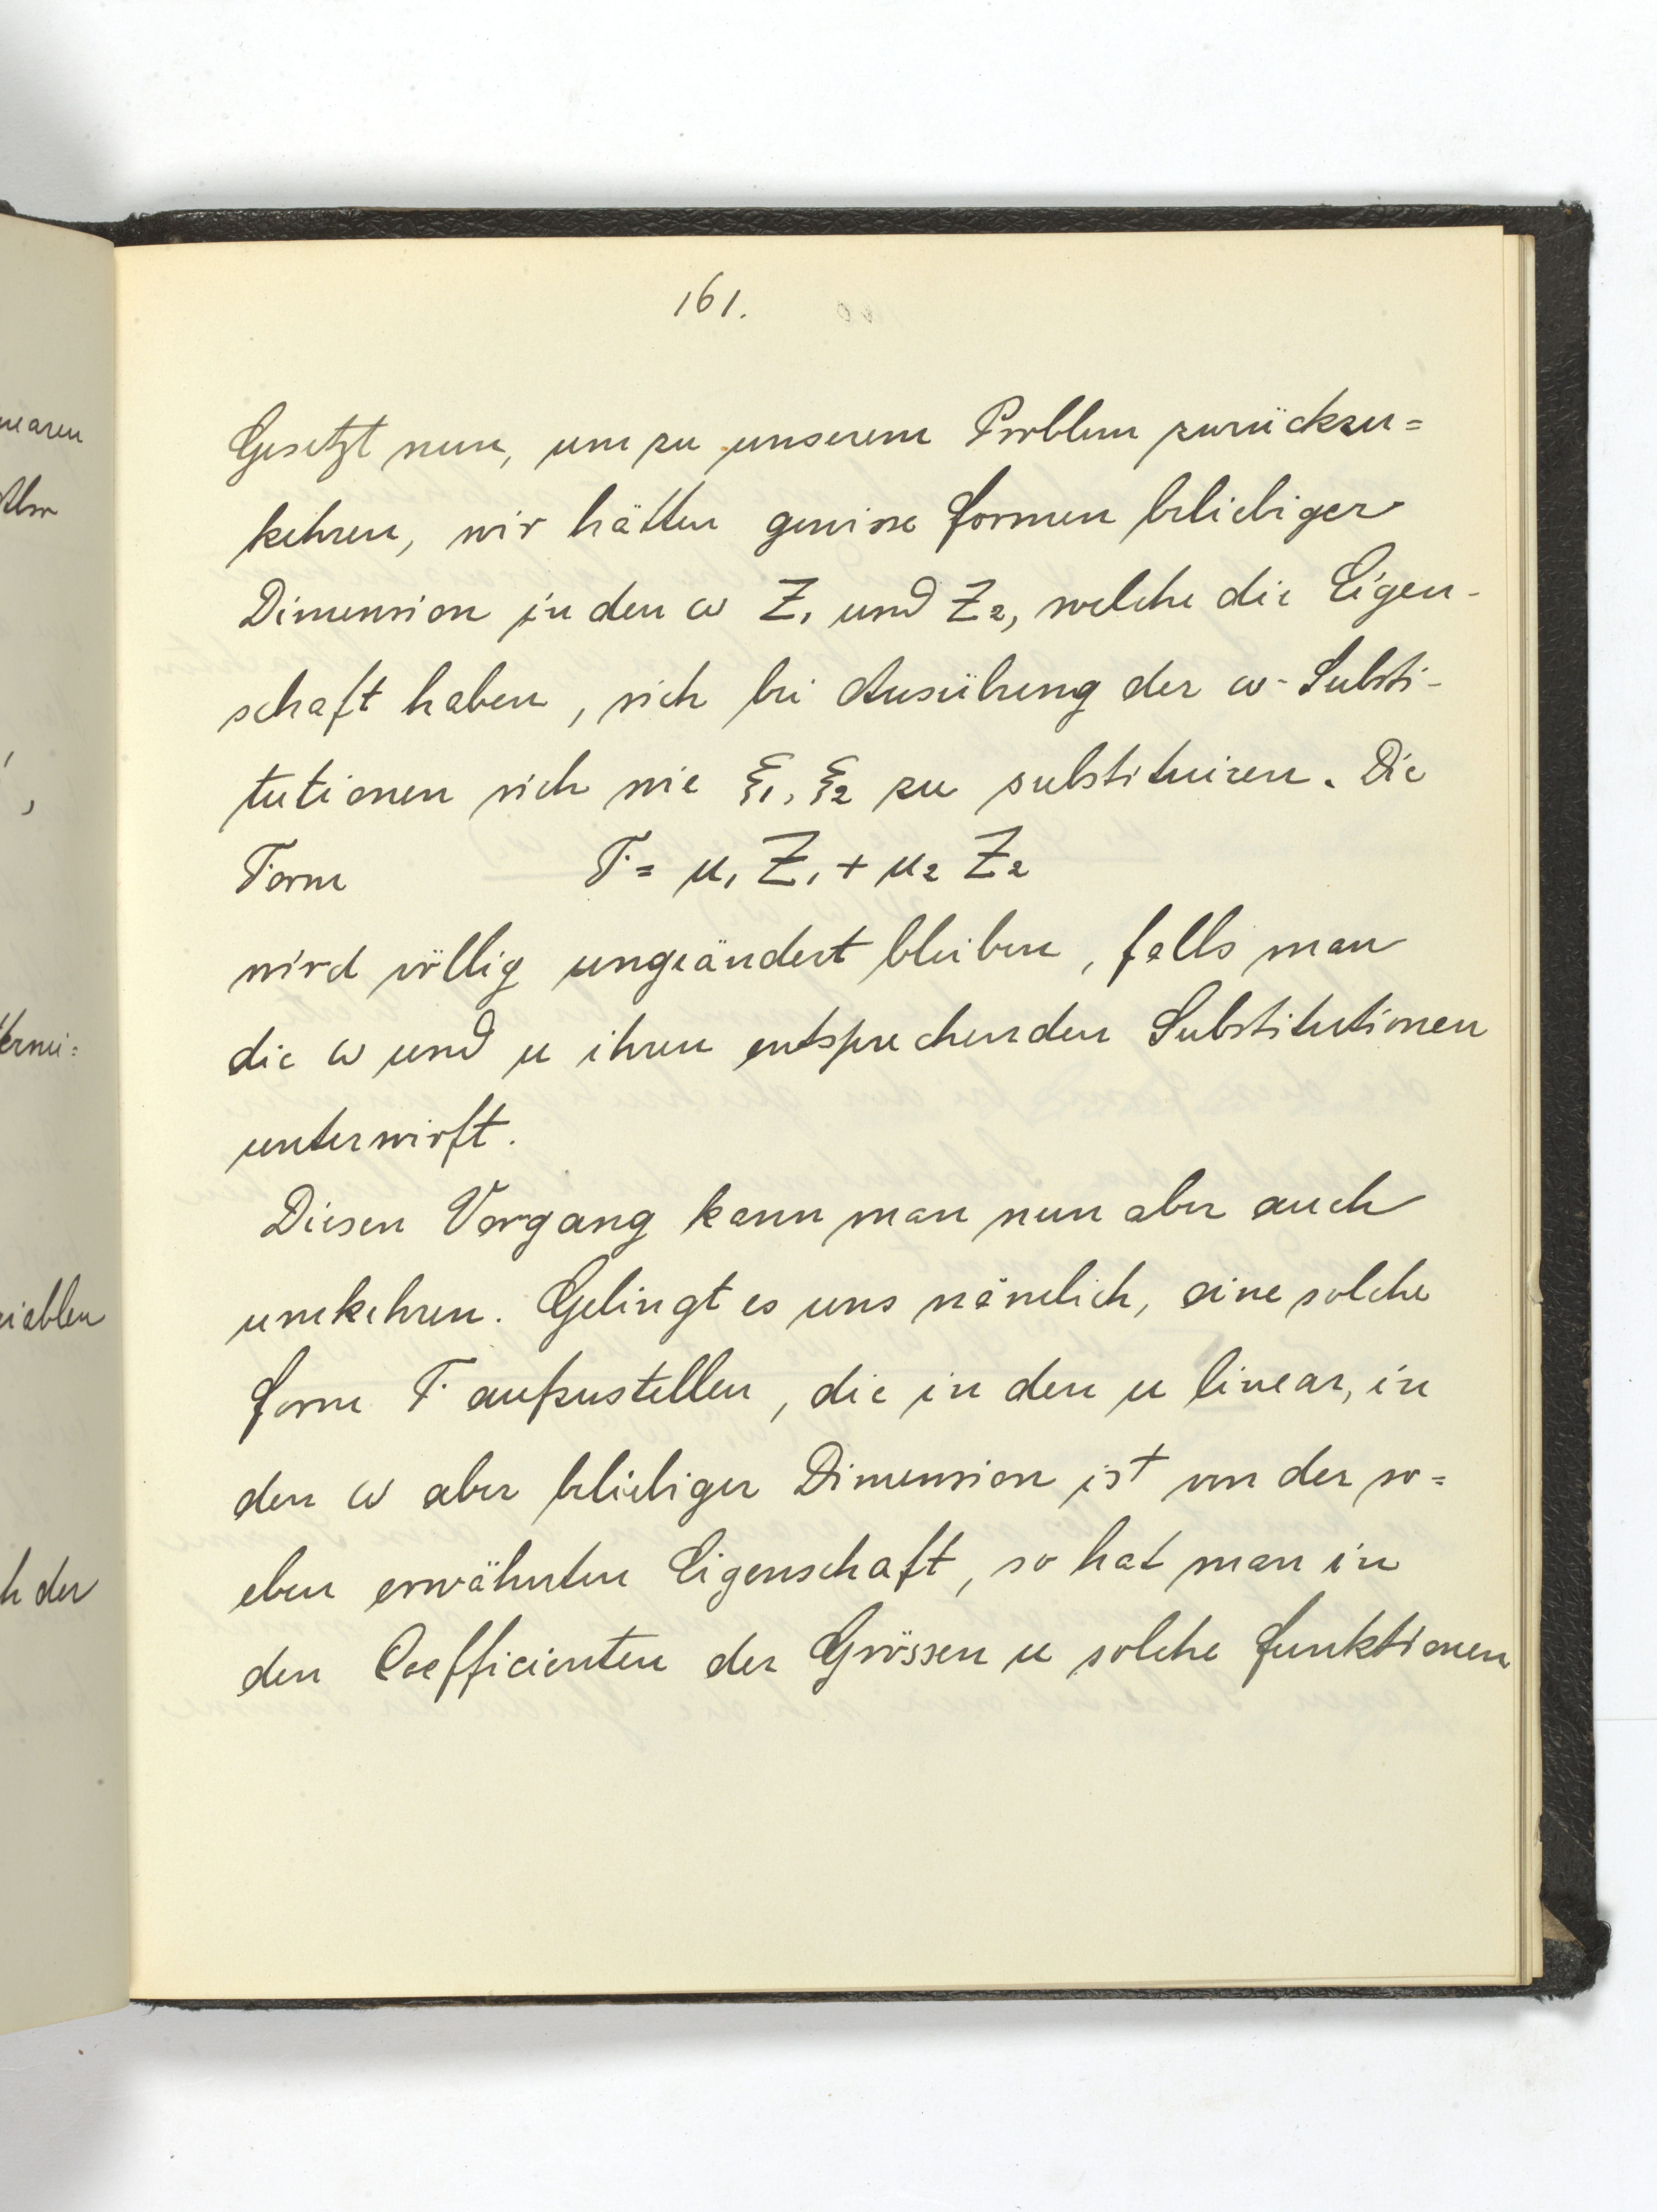 161.
Gesetzt nun, um zu unserem Problem zurückzu=
kehren, wir hätten gewisse Formen beliebiger
Dimension in den ω Z₁ und Z₂, welche die Eigen-
schaft haben, sich bei Ausübung der ω-Substi-
tutionen sich wie ξ₁, ξ₂ zu substituiren. Die
Form F = u₁ Z₁ + u₂ Z₂
wird völlig ungeändert bleiben, falls man
die ω und u ihren entsprechenden Substitutionen
unterwirft.
Diesen Vorgang kann man nun aber auch
umkehren. Gelingt es uns nämlich, eine solche
Form F aufzustellen, die in den u linear, in
den ω aber beliebiger Dimension ist von der so=
eben erwähnten Eigenschaft, so hat man in
den Coefficienten der Grössen u solche Funktionen
nearen
Also
,
,
ermi=
riablen
h der